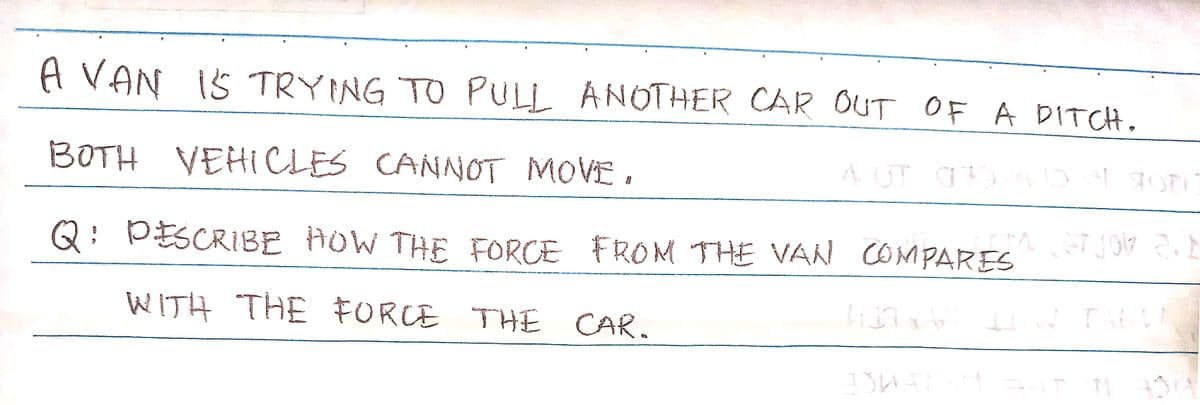 A VAN IS TRYING TO PULL ANOTHER CAR OUT OF A DITCH.
BOTH VEHICLES CANNOT MOVE.
Q: DESCRIBE HOW THE FORCE FROM THE VAN COMPARES
WITH THE FORCE THE CAR.